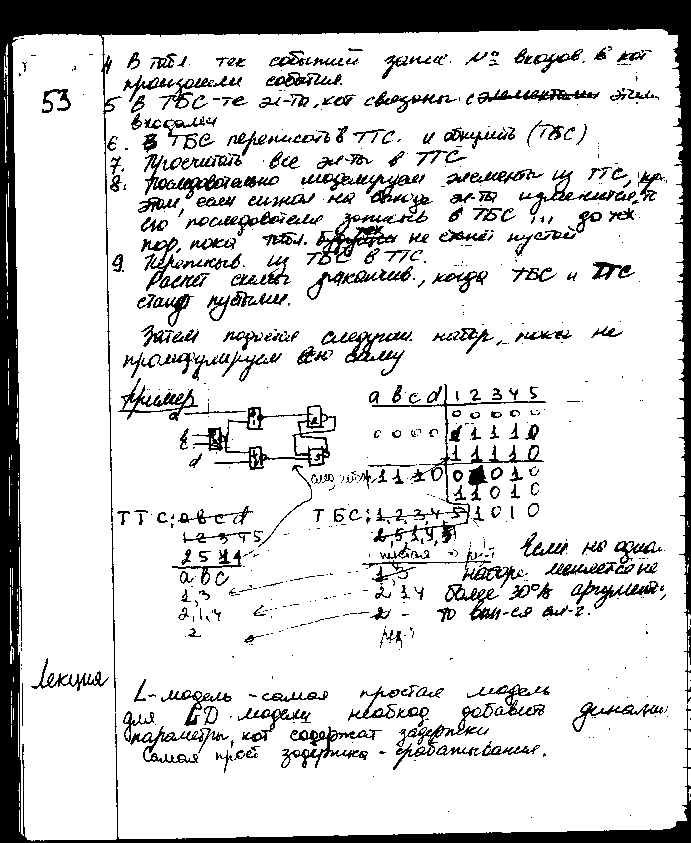 4 В табл. тек событий запис. № входов в кот
произошли события.
53
5 В ТБС-те эл-та, кот связаны с элементами этим
входами
6. В ТБС переписать в ТТС. и обнулить (ТБС)
7. Просчитать все эл-ты в ТТС
8. Последовательно моделируем элементы из ТТС, при
этом, если сигнал на выходе эл-та изменится, то
его последователи запись в ТБС ... до тех
пор, пока табл. тек не станет пустой
9. Переписыв. из ТБС в ТТС.
Расчет схемы закончив., когда ТБС и ТТС
станут пустыми.
Затем подается следующ. набор, пока не
промодулируем всю схему
Пример
a b c d 1 2 3 4 5
0 0 0 0 0
0 0 0 0 1 1 1 1 0
1 1 1 1 0
1 1 1 0 0 1 0 1 0
1 1 0 1 0
1 1 0 1 0
ТТС: a b c d
ТБС: 1, 2, 3, 4, 5
1 2 3 4 5
2, 5, 1, 4, 3
2 5 1 4
пустая
a b c
1, 3
1, 3
2, 1, 4
2, 1, 4
2
2 -
Если на одном
наборе меняется не
более 30% аргумент.,
то вып-ся ал-г.
Лекция
L-модель - самая простая модель
для LD модели необход добавить динами
параметры, кот содержат задержки
Самая прост задержка - срабатывания.